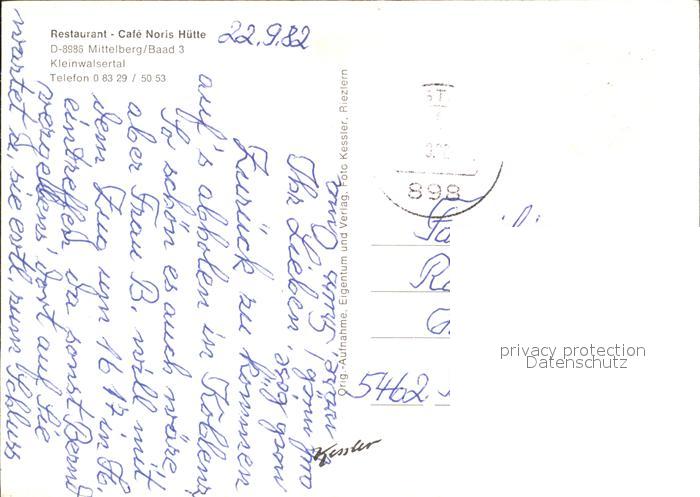 Restaurant - Café Noris Hütte
D-8986 Mittelberg/Baad 3
Kleinwalsertal
Telefon 0 83 29 / 50 53
22.9.82
Ihr Lieben,
Zurück zu kommen
auf's abholen in Koblenz
So schön es auch wäre,
aber Frau B. will mit
dem Zug um 16 17 in
eintreffen, da sonst Bernd
vergebens dort auf Sie
wartet u. sie evtl. zum Schluss
Orig.-Aufnahme, Eigentum und Verlag, Foto Kessler, Riezlern
898
5462
privacy protection
Datenschutz
Kessler